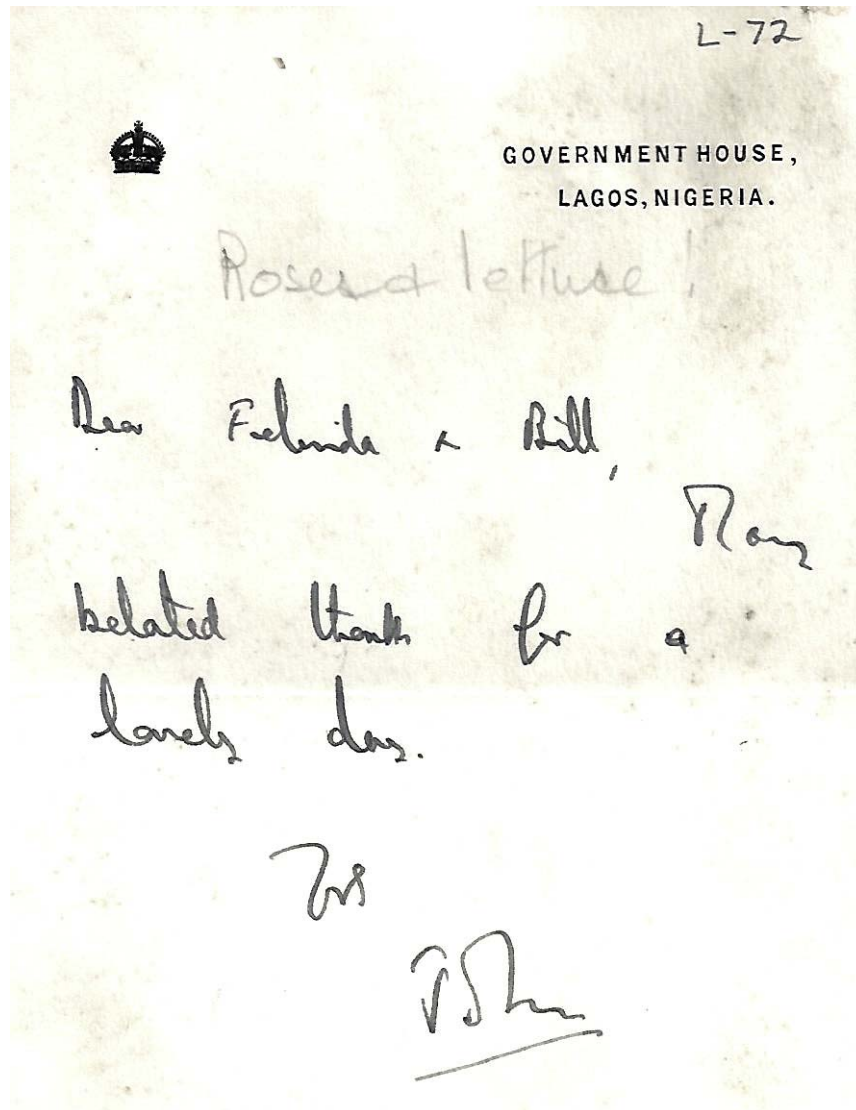 L-72
GOVERNMENT HOUSE,
LAGOS, NIGERIA.
Roses & lettuce!
Dear Felicida & Bill,
Many
belated thanks for a
lovely day.
Yrs